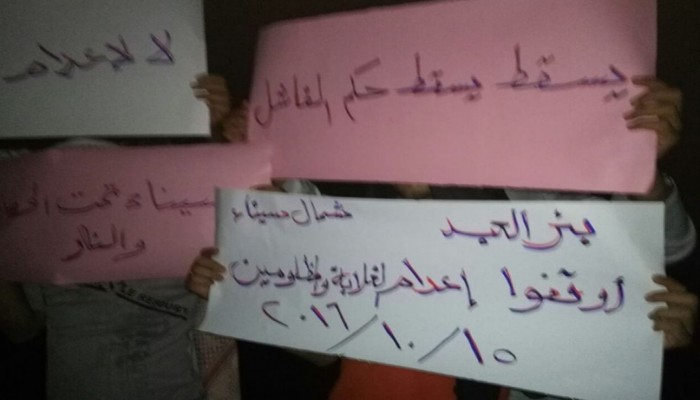 لا للإعدام
يسقط يسقط حكم الفاشل
سيناء تحت
والنار
بئر العبد
شمال سيناء
أوقفوا إعدام الغلابة والمظلومين
٢٠١٦/١٠/١٥